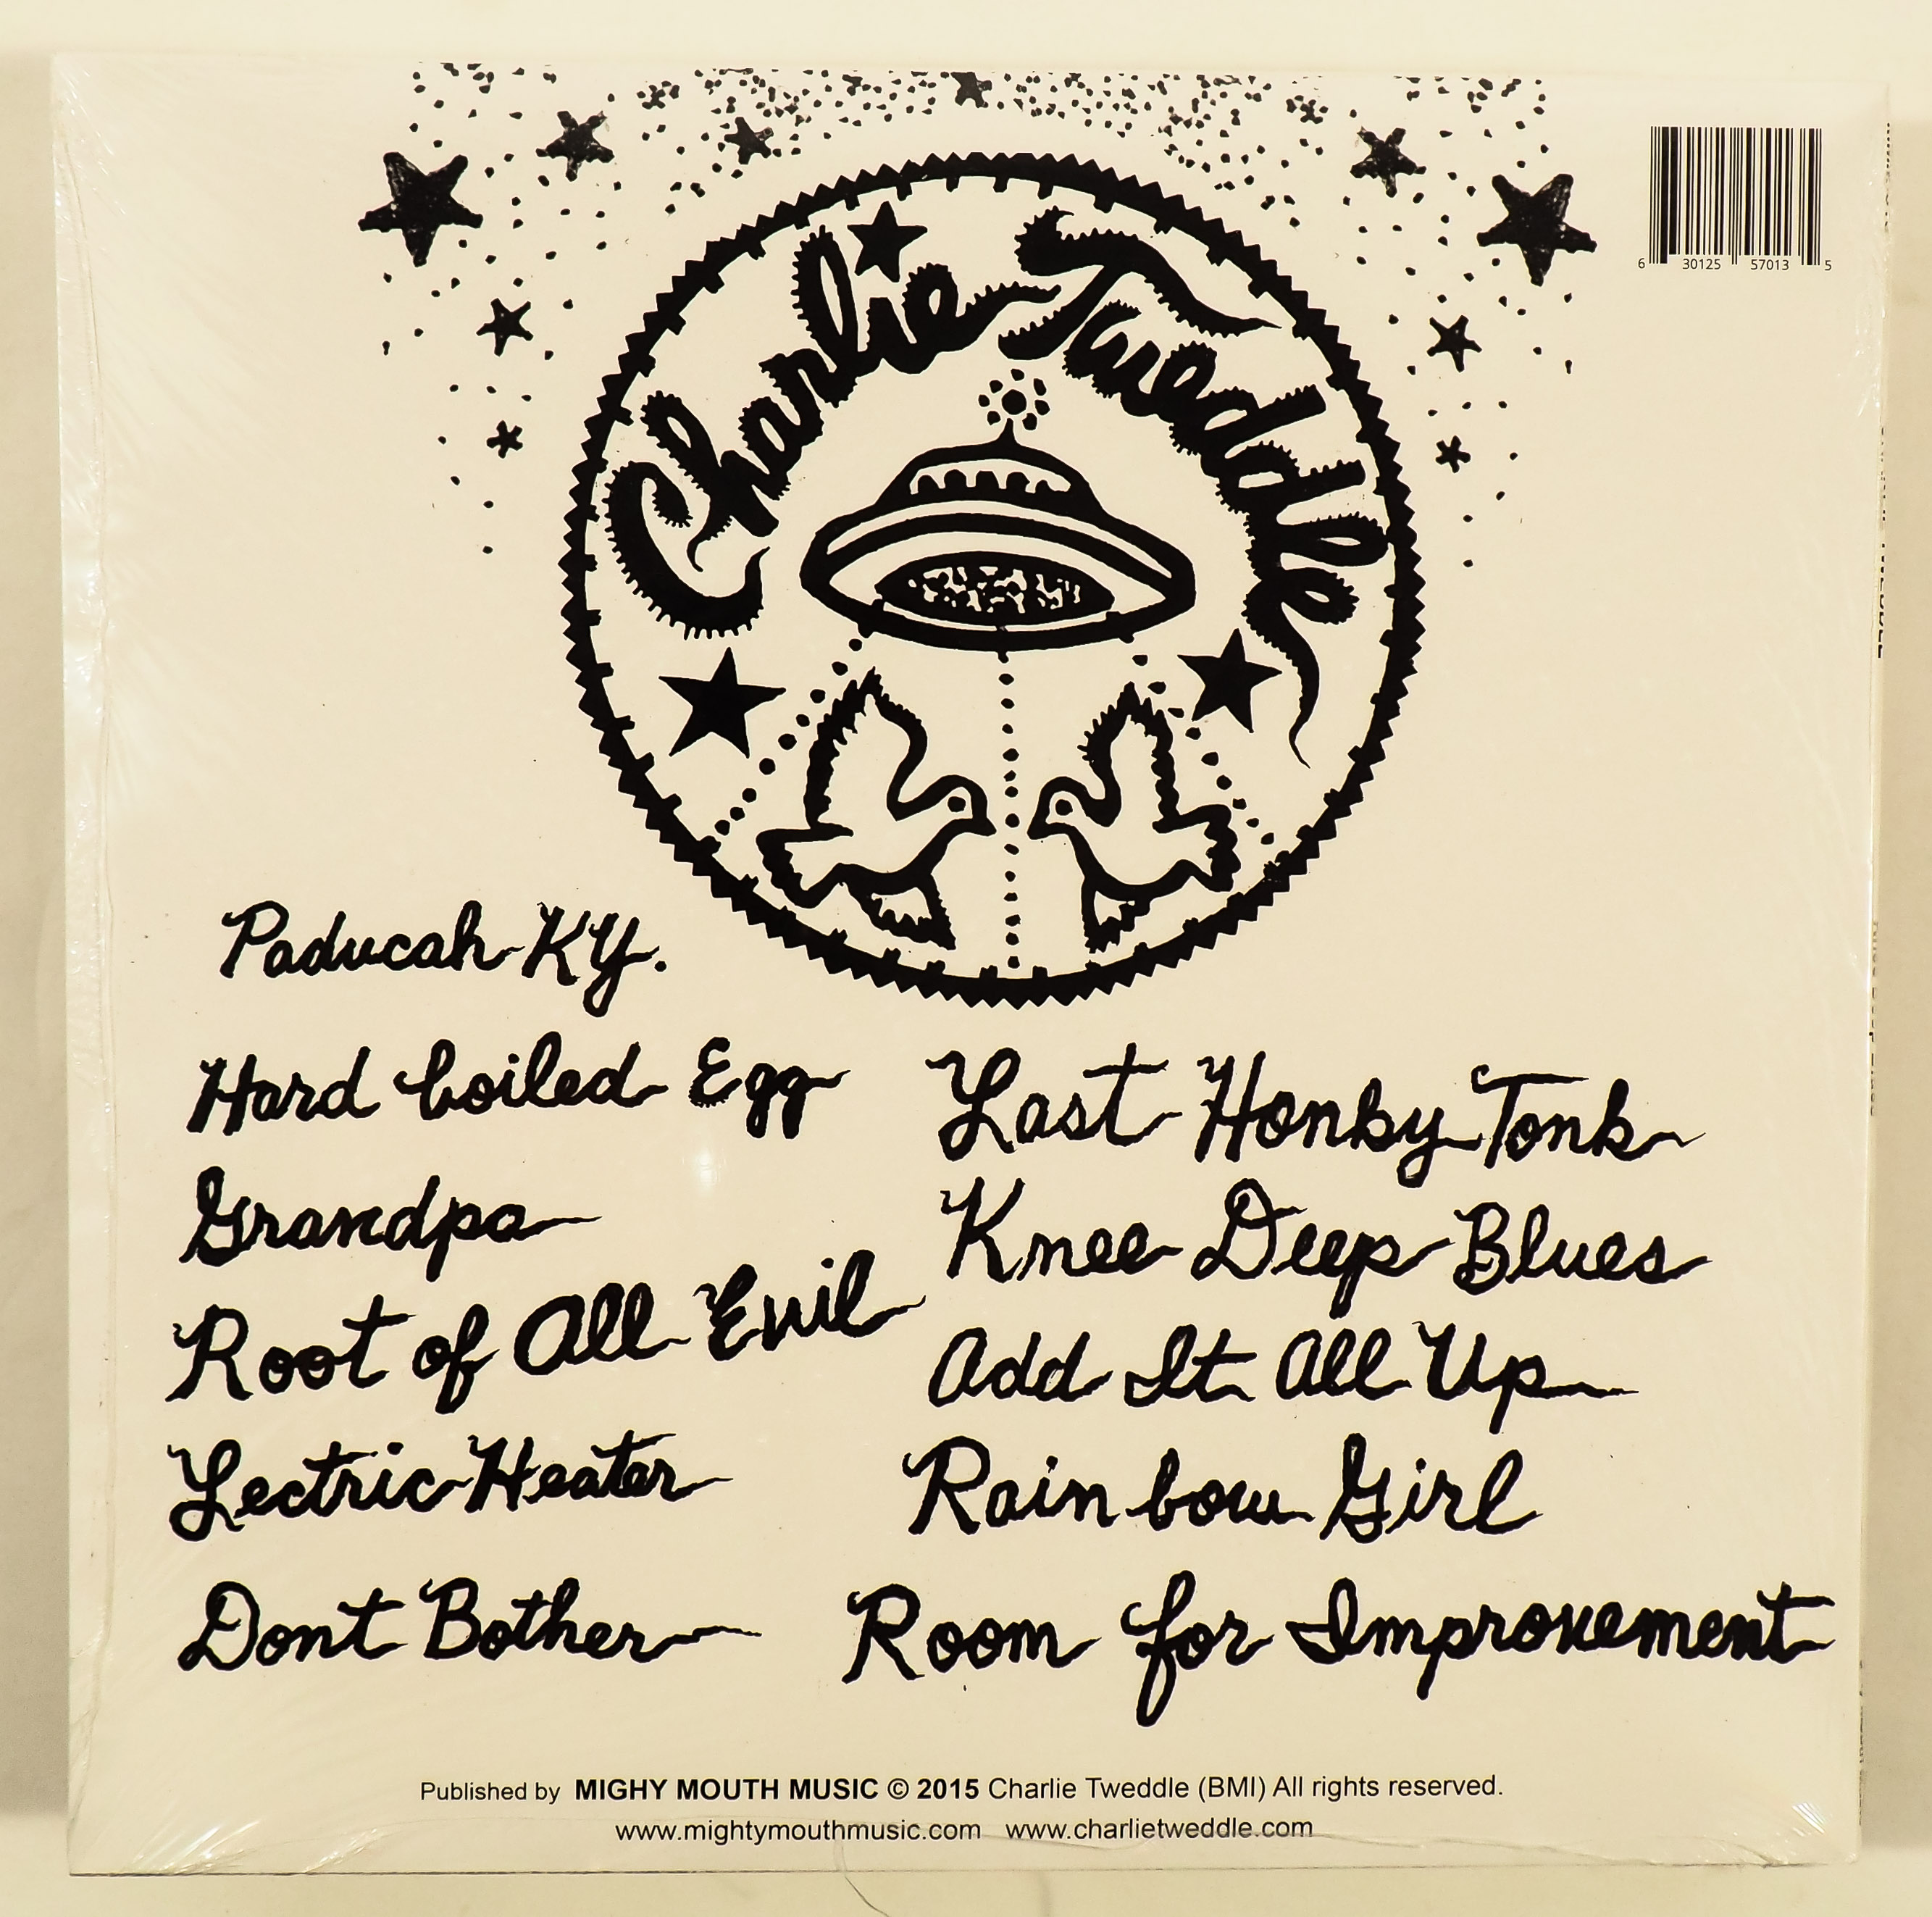 Charlie Tweddle
6 30125 57013 5
Paducah KY.
Hard boiled Egg
Grandpa
Root of All Evil
Lectric Heater
Dont Bother
Last Honky Tonk
Knee Deep Blues
Add It All Up
Rainbow Girl
Room for Improvement
Published by MIGHY MOUTH MUSIC © 2015 Charlie Tweddle (BMI) All rights reserved.
www.mightymouthmusic.com www.charlietweddle.com